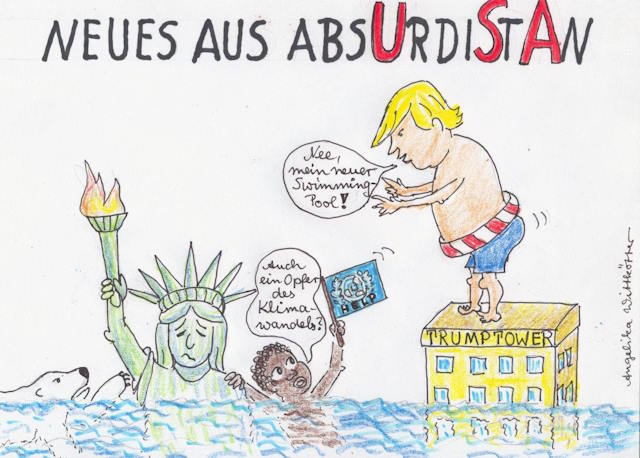 NEUES AUS ABSURDISTAN
Nee,
mein neuer
Swimming-
Pool!
Auch
ein Opfer
des
Klima-
wandels?
HELP
TRUMPTOWER
Angelika Wittkötter